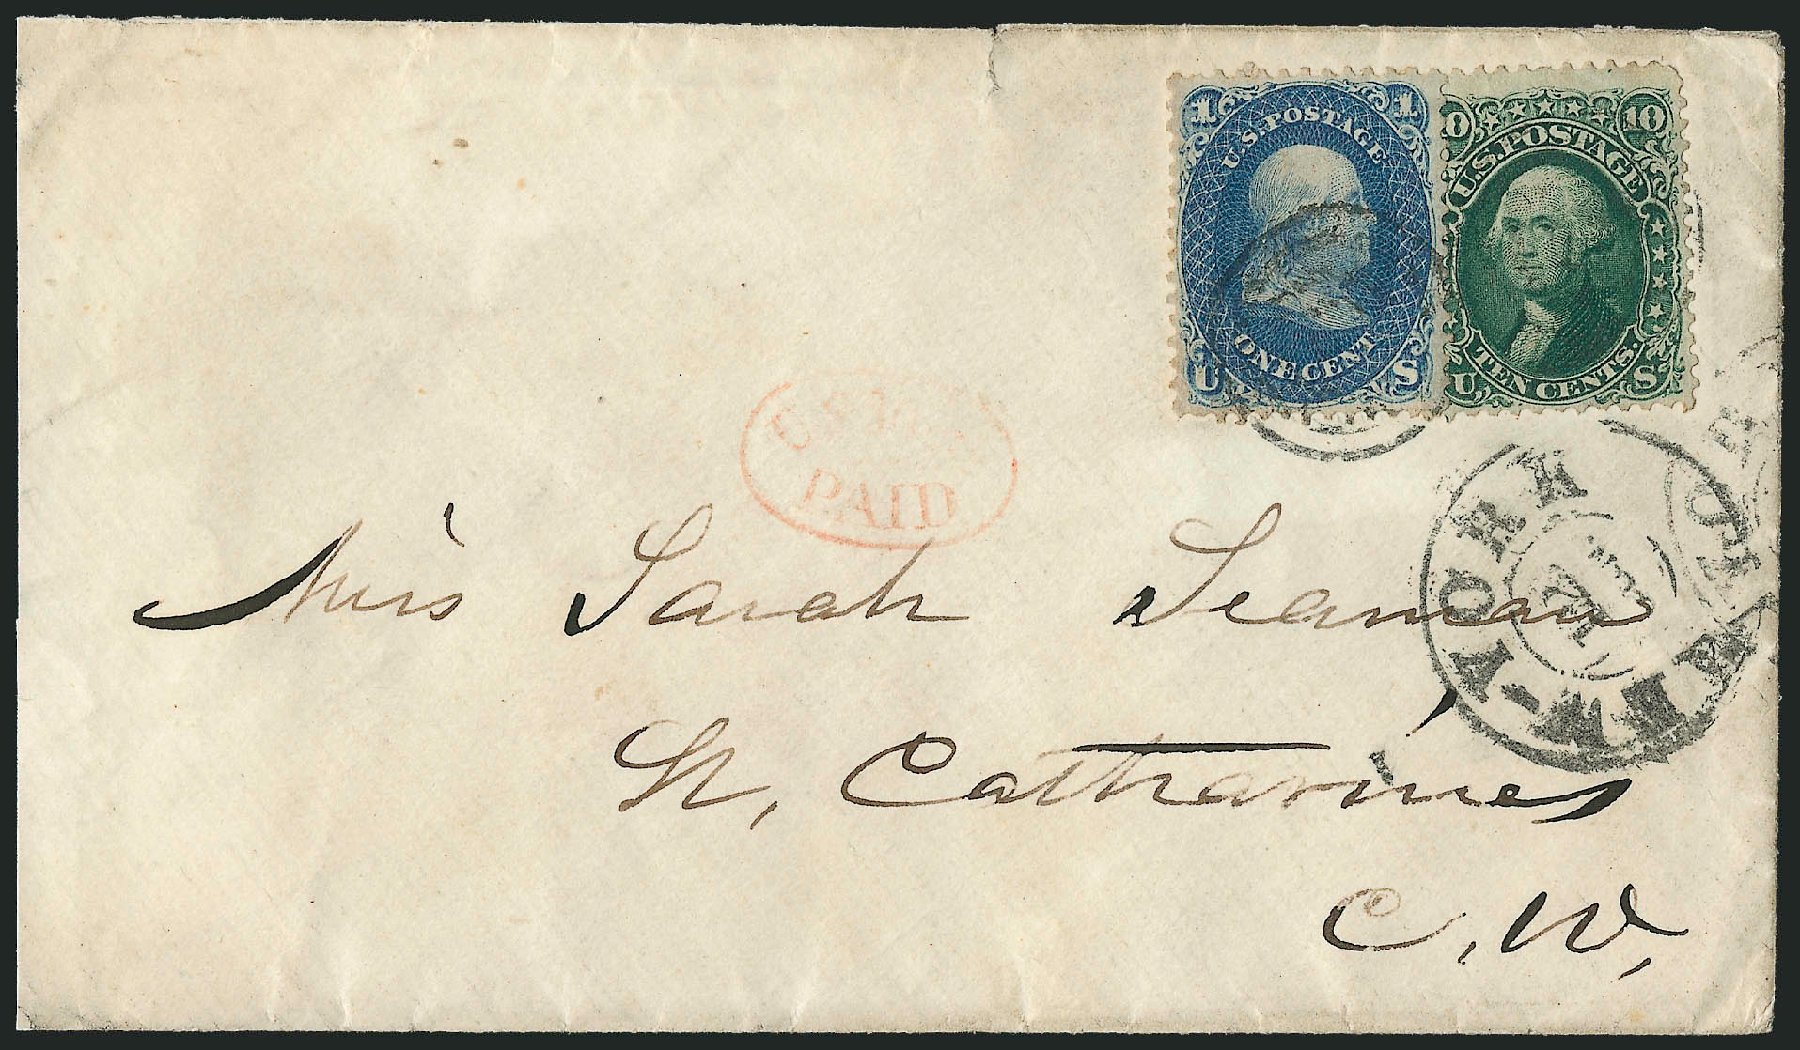 1 1
U.S. POSTAGE
ONE CENT
U S
0 10
U.S. POSTAGE
TEN CENTS.
U. S
PAID
NEW-YORK
Miss Sarah Seaman
St, Catharines,
C.W,